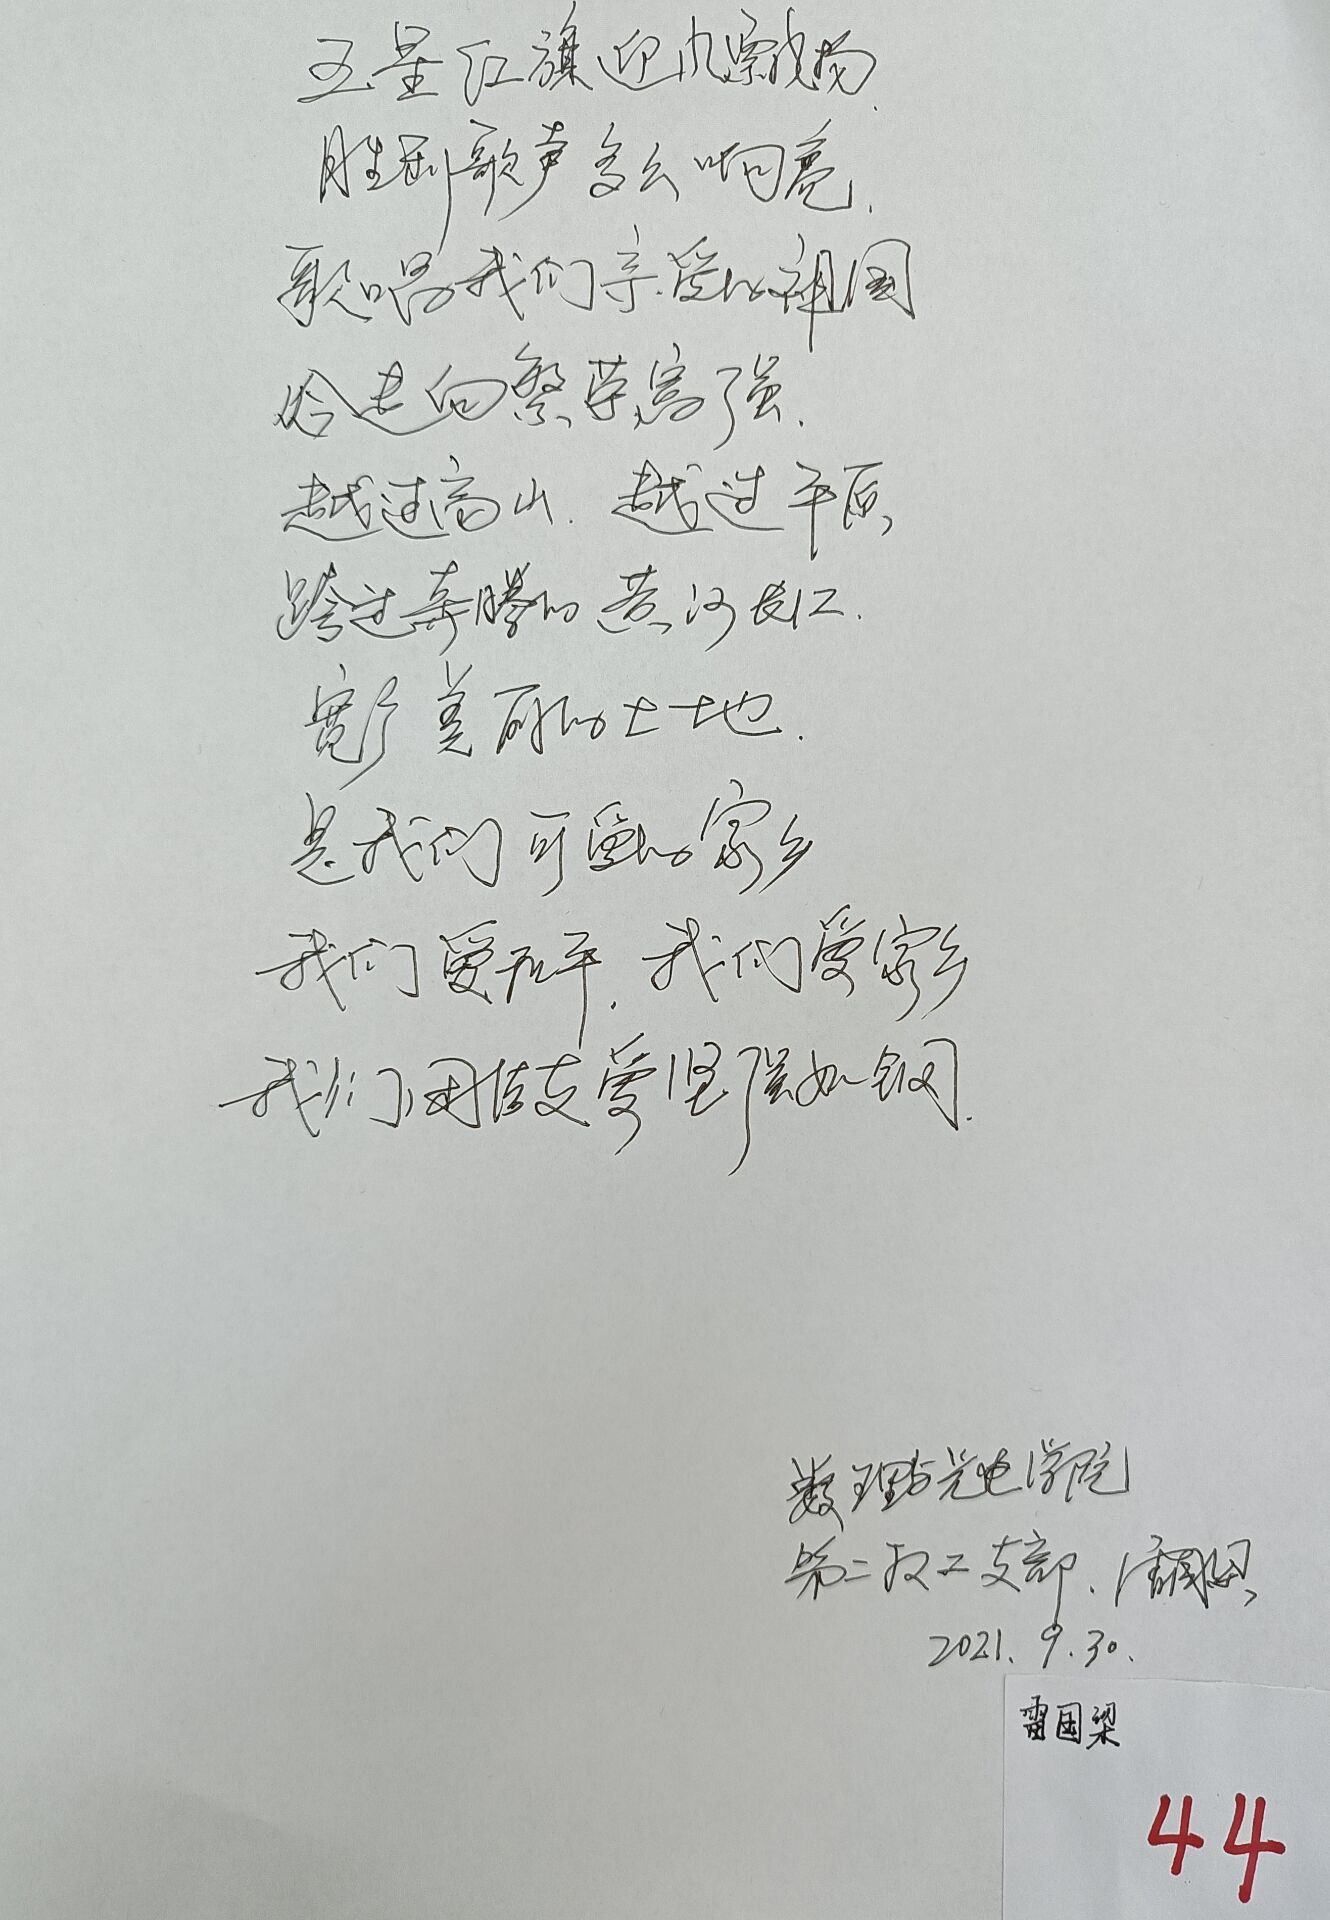 五星红旗迎风飘扬，
胜利歌声多么响亮，
歌唱我们亲爱的祖国
从今走向繁荣富强，
越过高山，越过平原，
跨过奔腾的黄河长江，
宽广美丽的土地，
是我们可爱的家乡
我们爱和平，我们爱家乡
我们团结友爱坚强如钢，
数理与光电学院
第二教工支部，雷国梁
2021.9.30.
雷国梁
44